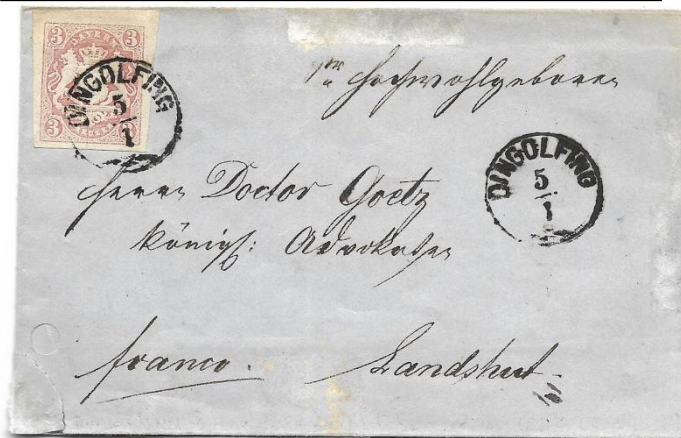 3 BAYERN 3
3 KREUZER 3
DINGOLFING
5/1
Sr Hochwohlgeboren
DINGOLFING
5/1
Herrn Doctor Goetz
königl: Advokaten
franco.
Landshut